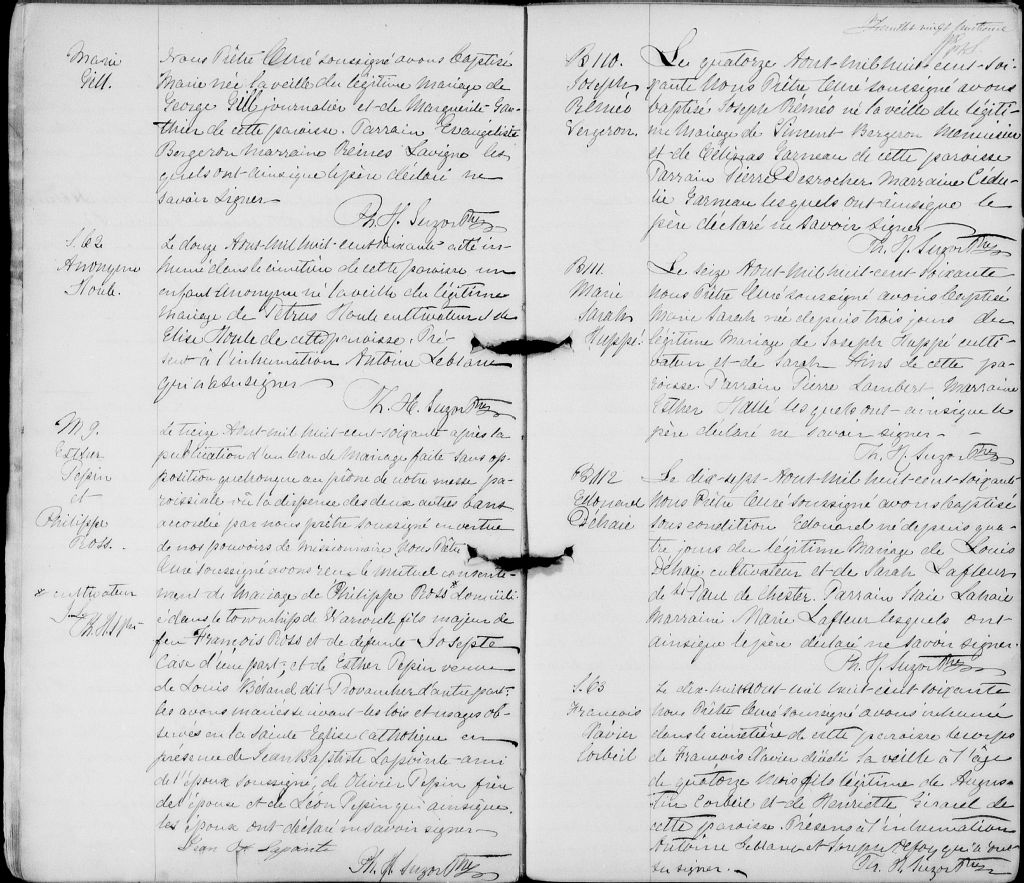 Marie
Gill.
nous Prêtre Curé soussigné avons baptisé
Marie née la veille du légitime mariage de
George Gill journalier et de Marguerite Gau-
thier de cette paroisse. Parrain Evangeliste
Bergeron marraine Reines Lavigne les
quels ont ainsi que le père déclaré ne
savoir signer
Th. H. Suzor Ptre
S. 62
Anonyme
Houle.
Le douze Aout mil huit cent soixante a été in-
humé dans le cimetière de cette paroisse un
enfant anonyme né la veille du légitime
mariage de Petrus Houle cultivateur et de
Elise Houle de cette paroisse. Pré-
sent à l'inhumation Antoine Leblanc
qui n'a su signer
Th. H. Suzor Ptre
M 9.
Esther
Pepin
et
Philippe
Ross.
Le treize Aout mil huit cent soixante après la
publication d'un ban de mariage faite sans op-
position quelconque au prône de notre messe pa-
roissiale vû la dispense des deux autres bans
accordée par nous prêtre soussigné en vertue
de nos pouvoirs de missionnaire nous Prêtre
Curé soussigné avons reçu le mutuel consente-
ment de mariage de Philippe Ross * domicilié
* cultivateur
Th. H. S. Ptre
dans le township de Warwick fils majeur de
feu François Ross et de défunte Josepte
Case d'une part; et de Esther Pepin veuve
de Louis Béland dit Provancher d'autre part;
les avons mariés suivant les lois et usages ob-
servés en la Sainte Eglise Catholique en
présence de Jean Baptiste Lapointe ami
de l'époux soussigné, de Olivier Pepin frère
de l'épouse et de Leon Pepin qui ainsi que
les époux ont déclaré ne savoir signer
Jean Bt Lapointe
Th. H. Suzor Ptre
B 110.
Joseph
Réméo
Bergeron.
Le quatorze Aout mil huit cent soi-
xante nous Prêtre Curé soussigné avons
baptisé Joseph Réméo né la veille du légiti-
me mariage de Simeont Bergeron Menuisier
et de Célinas Garneau de cette paroisse
Parrain Pierre Desrocher Marraine Cédu-
lie Garneau lesquels ont ainsi que le
père déclaré ne savoir signer
Th. H. Suzor Ptre
B 111
Marie
Sarah
Huppé.
Le seize Aout mil huit cent soixante
nous Prêtre Curé soussigné avons baptisé
Marie Sarah née depuis trois jours du
légitime mariage de Joseph Huppé culti-
vateur et de Sarah Hins de cette pa-
roisse. Parrain Pierre Lambert Marraine
Esther Hallé lesquels ont ainsi que le
père déclaré ne savoir signer
Th. H. Suzor Ptre
B 112
Edouard
Dehaie
Le dix-sept Aout mil huit cent soixante
nous Prêtre Curé soussigné avons baptisé
sous condition Edouard né depuis qua-
tre jours du légitime mariage de Louis
Dehaie cultivateur et de Sarah Lafleur
de St Paul de Chester. Parrain Haie Labaie
Marraine Marie Lafleur lesquels ont
ainsi que le père déclaré ne savoir signer
Th. H. Suzor Ptre
S. 63
Francois
Xavier
Corbeil
Le dix-huit Aout mil huit cent soixante
nous Prêtre Curé soussigné avons inhumé
dans le cimetière de cette paroisse le corps
de François Xavier décédé la veille à l'âge
de quatorze mois fils légitime de Augus-
tin Corbeil et de Henriette Girard de
cette paroisse. Présens à l'inhumation
Antoine Leblanc et Joseph qui n'ont
su signer.
Th. H. Suzor Ptre